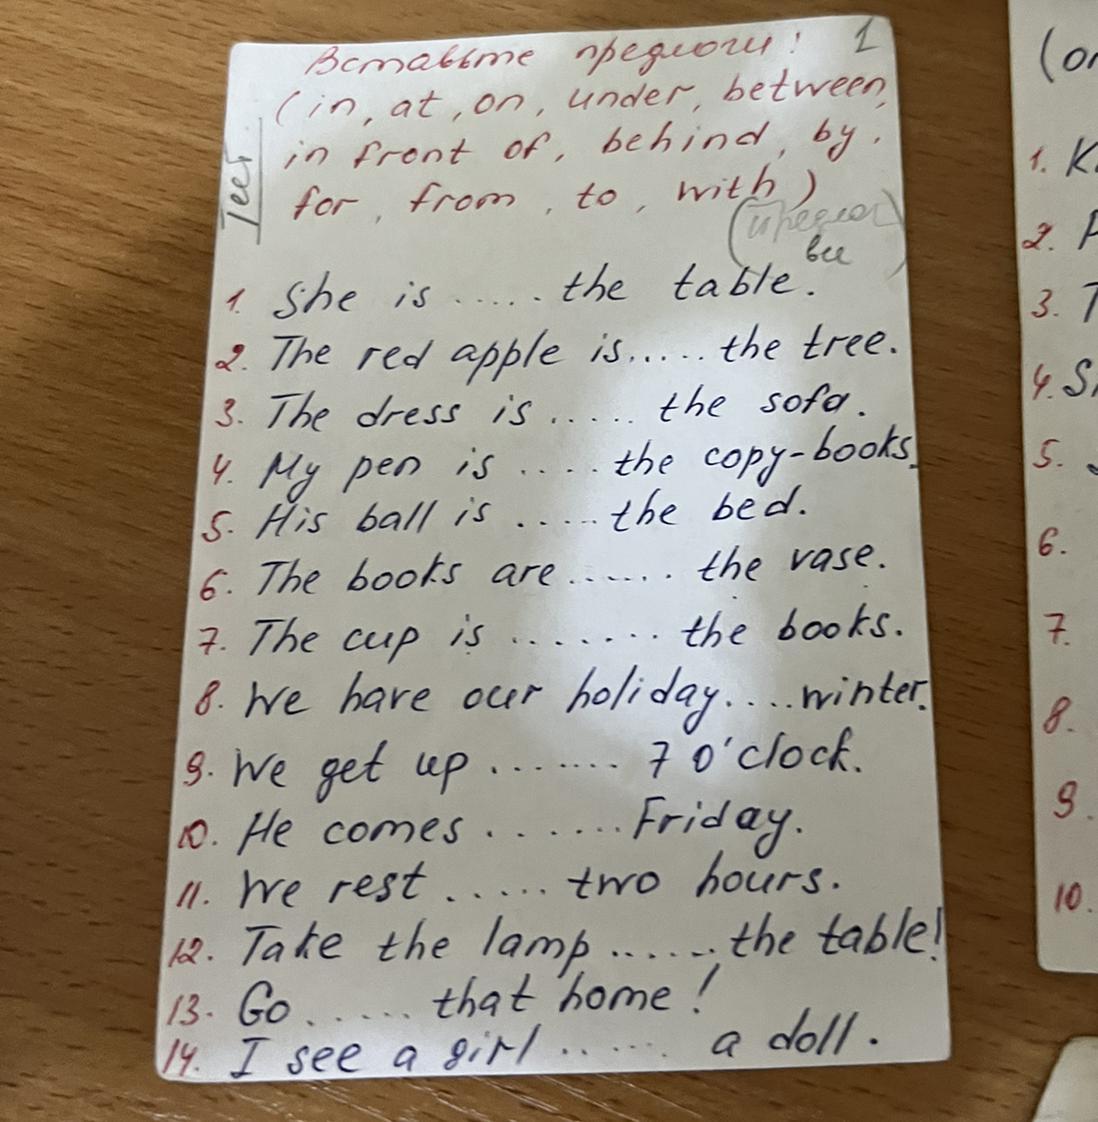 Вставьте предлоги! 1
(in, at, on, under, between,
in front of, behind, by,
for, from, to, with)
Тест
(предлог)
все
1. She is ..... the table.
2. The red apple is..... the tree.
3. The dress is ..... the sofa.
4. My pen is .... the copy-books.
5. His ball is ..... the bed.
6. The books are ...... the vase.
7. The cup is ....... the books.
8. We have our holiday.... winter.
9. We get up ....... 7 o'clock.
10. He comes ....... Friday.
11. We rest ..... two hours.
12. Take the lamp ...... the table!
13. Go ..... that home!
14. I see a girl ...... a doll.
(on
1. K
2.
3. T
4. S
5.
6.
7.
8.
9.
10.